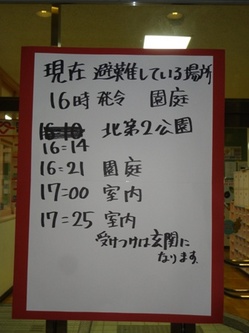 現在 避難している場所
16時 発令 園庭
北第2公園
16:14
16:21 園庭
17:00 室内
17:25 室内
受けつけは玄関に
なります。